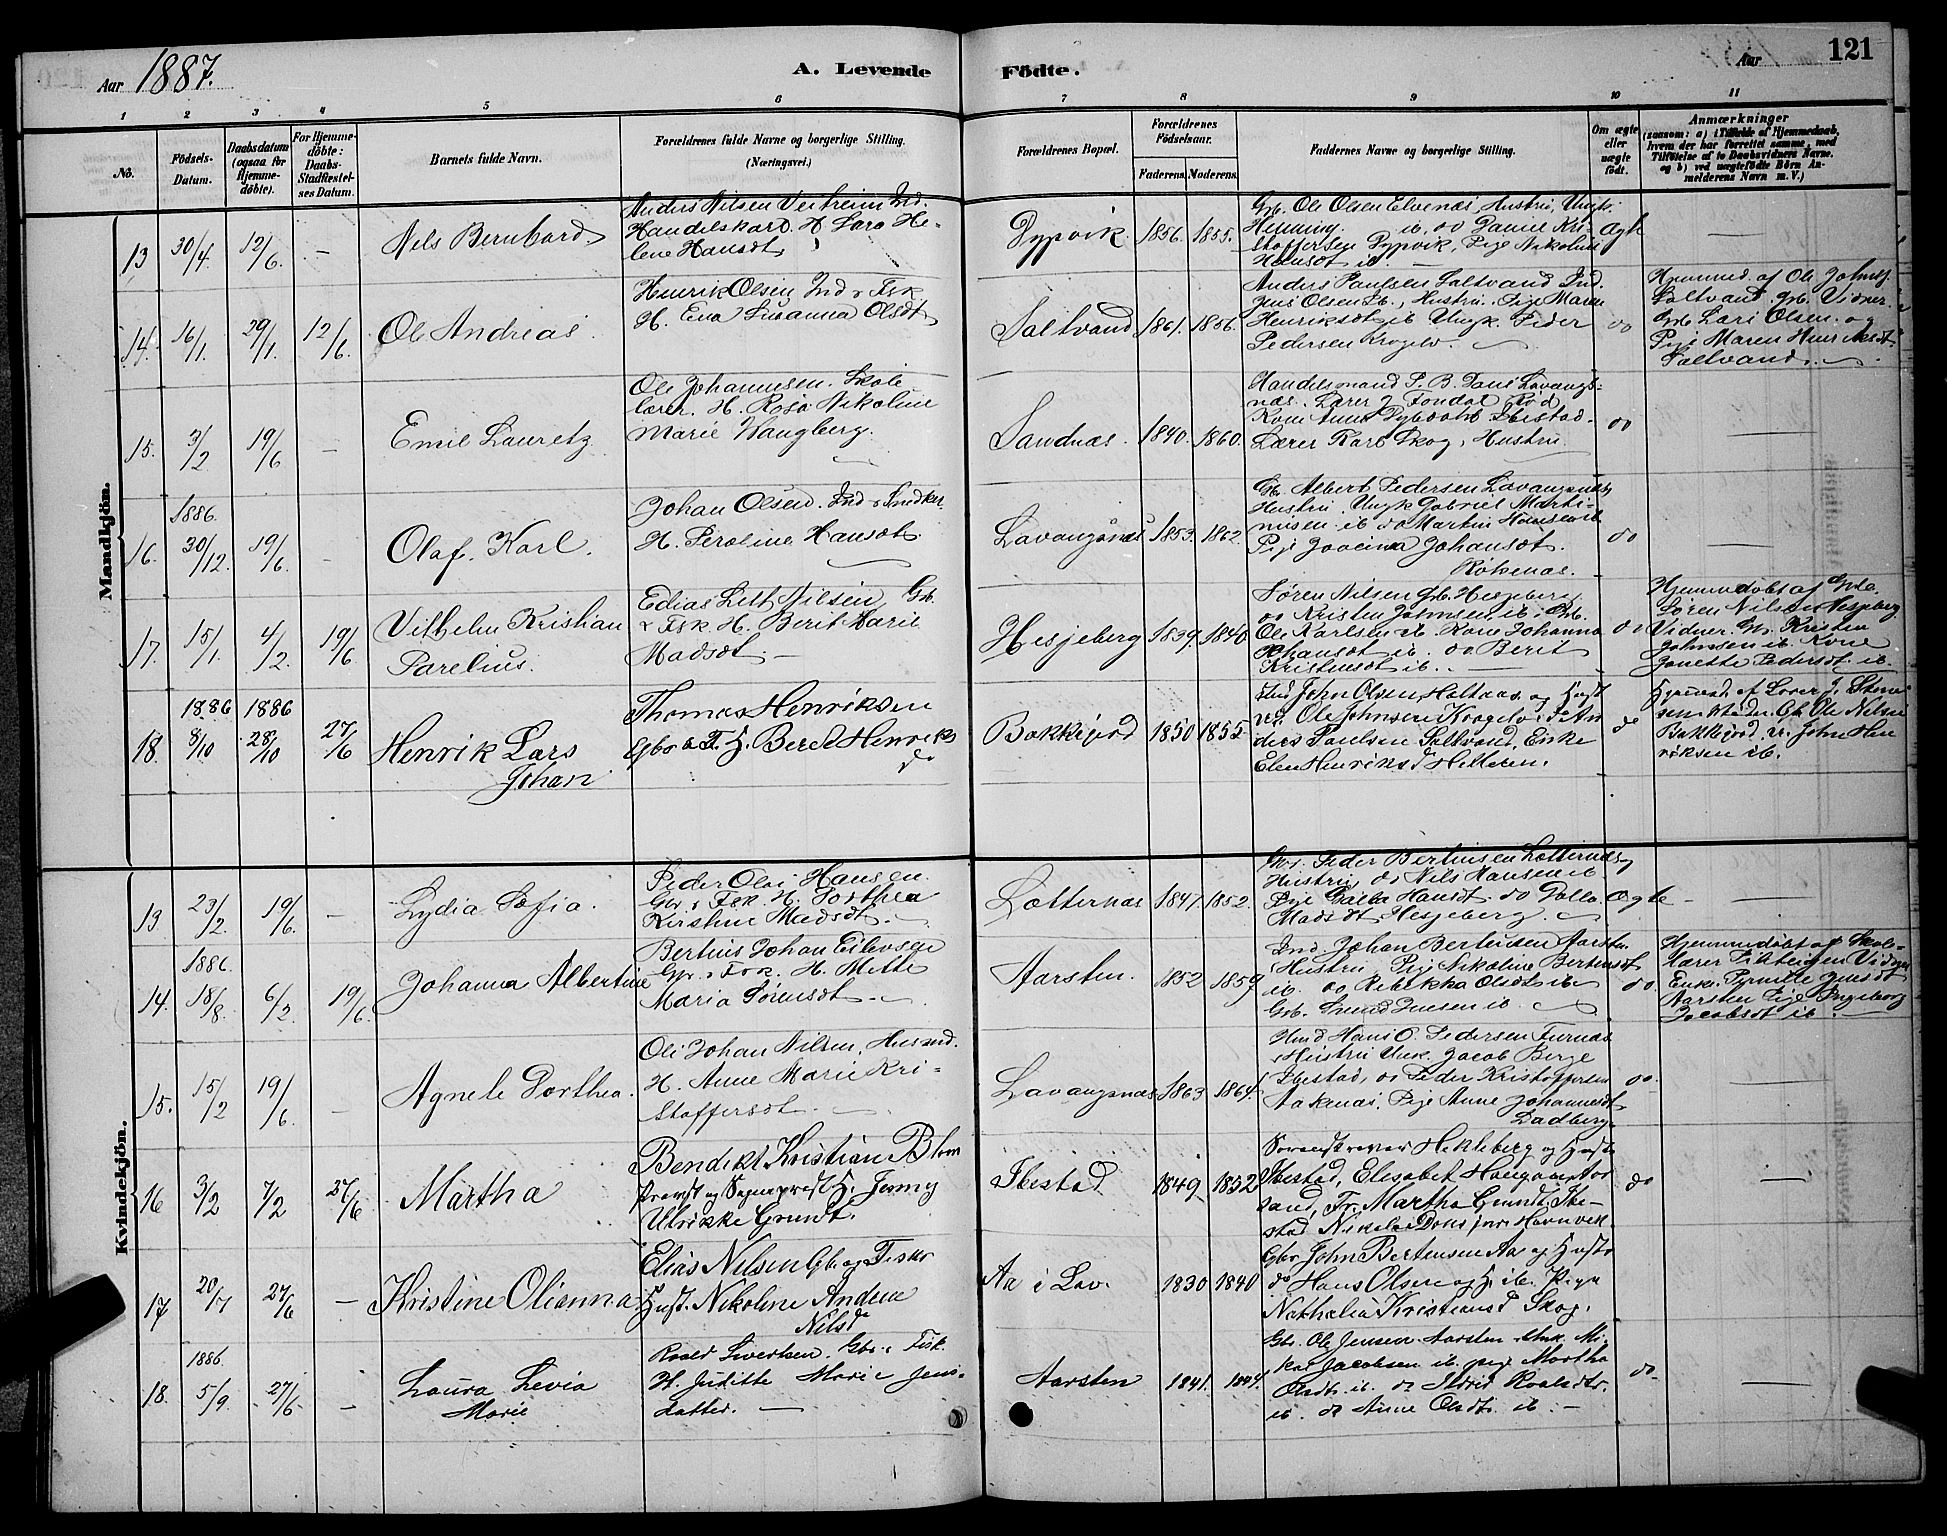 Aar 1887.
A. Levende
Födte.
Aar
121
1 2 3 4 5 6 7 8 9 10 11
No.
Födsels-
Datum.
Daabsdatum
(ogsaa for
Hjemme-
döbte).
For Hjemme-
döbte:
Daabs-
Stadfæstel-
ses Datum.
Barnets fulde Navn.
Forældrenes fulde Navne og borgerlige Stilling.
(Næringsvei.)
Forældrenes Bopæl.
Forældrenes
Födselsaar.
Faderens. Moderens.
Faddernes Navne og borgerlige Stilling.
Om ægte
eller
uægte
födt.
Anmærkninger
(saasom: a) i Tilfælde af Hjemmedaab,
hvem der har forrettet samme, med
Tilföielse af to Daabsvidners Navne.
og b) ved uægtefödte Börn An-
melderens Navn m. V.)
Mandkjön.
13 30/4 12/6. — Nels Bernhard
Anders Nilsen
Handelskarl. H. Sara He-
lene Hansdt.
Dypvik 1856. 1855.
Gbr. Ole Olsen Elvenæs, Hustru, Ungk.
Henning ib, do Daniel Kri-
stoffersen Dypvik, Pige Nikoline
Hansdt ib —
Ægte
—
14. 16/1. 29/1. 12/6. Ole Andreas.
Henrik Olsen Ind. & Fsk
H. Ena Susanna Olsdt.
Saltvand 1861. 1856.
Anders Paulsen Saltvand Ind.
Jens Olsen ib, Hustru. Pige Maren
Henriksdt ib Ungk. Peder
Pedersen Krogelv.
do
Hjemmed. af Ole Johns.
Saltvand. Gbr. Vidner.
Gbr. Lars Olsen. og
Pige Maren Henriksdt.
Saltvand.
15. 3/2 19/6 — Emil Lauretz
Ole Johannesen. Skole
lærer. H. Rosa Nikoline
Marie Wangberg.
Sandnæs. 1840. 1860.
Handelsmand P. B. Dons Lavangs-
næs. Lærer J Fondal Rød
Kone Anne Ibestad.
Lærer Karl Skog, Hustru
do
—
16. 1886. 30/12. 19/6. — Olaf. Karl.
Johan Olsen. Ind & Snedker.
H. Peroline Hansdt
Lavangsnæs 1853. 1862.
Gbr. Albert Pedersen Lavangsnæs,
Hustru. Ungk Gabriel Marti-
nusen ib do Martin Hansen ib
Pige Johansdt.
Rökenæs.
do
—
17. 15/1. 4/2. 19/6 Vilhelm Kristian
Parelius.
Edias Nilsen, Gbr.
& Fsk. H. Berit Marie
Madsdt. —
Hesjeberg 1839. 1840
Søren Nilsen Gbr. Hesjeberg
do Kristen Johnsen ib. Gbr.
Ole Karlsen ib. Kone Johanna
Johansdt ib. do Berit
Kristensdt ib. —
do
Hjemmedøbt af Gbr.
Søren Nilsen Hesjeberg
Vidner. Gbr. Kristen
Johnsen ib Kone
Janette Pedersdt. ib.
18. 1886 8/10 1886 28/10 27/6 Henrik Lars
Johan
Thomas Henriksen
Gbr & F. H. Berit Henriks
dt
Bakkejord 1850 1855
Ind. John Olsen Heltaas og Hust
ved. Ole Johnsen Krogelv, P. An
ders Paulsen Saltvand, Enke
Elen Henriksd Helteren.
do
Hjemmed. af Lærer J. Sten
sen. Gb Ole Nilsen
Bakkejord. og John Hen
riksen ib.
Kvindekjön.
13 23/2. 19/6. — Lydia Sofia.
Peder Olai Hansen
Gbr. & Fsk. H. Dorthea
Kristine Madsdt. —
Lotternæs 1847. 1852.
Gbr. Peder Bertinsen Lotternæs,
Hustru, do Nils Hansen ib
Pige Hansdt. do
Madsdt Hesjeberg.
Ægte
—
14. 1886. 18/8. 6/2. 19/6. Johanna Albertine
Bertius Johan Eilevsen
Gbr. & Fsk. H. Mette
Maria Sørensdt. —
Aarsten. 1852 1859
Ind. Johan Berteusen Aarsten
Hustru Pige Nikoline Bertensdt
ib. do Rebekka Olsdt ib
Gbr. Jensen ib.
do.
Hjemmedøbt af Skole-
lærer Vidner
Enke. Pernille Jensdt
Aarsten Pige Ingeborg
Jacobsdt ib. —
15. 15/2 19/6. — Agnete Dorthea.
Ole Johan Nilsen. Husmd.
H. Anne Marie Kri-
stoffersdt. —
Lavangsnæs 1863 1864
Husmd Hans O. Pedersen Furnæs
Hustru Ungk. Jacob Berge
Ibestad, do Peder Kristoffersen
Aakenæs. Pige Anne Johannesdt
Dadberg.
do.
—
16 3/2 7/2 27/6 Martha
Bendikt Kristian Blom
Provst og Sogneprest H. Jenny
Ulrikke Grundt.
Ibestad. 1849 1852
Sorenskriver Hekleberg og Hustr
Ibestad, Elisabet Haugan Aar
sand, Fr. Martha Grundt Ibe-
stad Nikolai Dons jnr. Havnvik
do
—
17 20/7 27/6 — Kristine Olianna
Elias Nilsen Gbr. og Fisker
Hust. Nikoline Andrea
Nilsd
Aa i Lav. 1830 1840
Gbr John Bertensen Aa og Hustr
do Hans Olsen og H. ib. Pige
Nathalia Kristiansd Skog.
18. 1886. 5/9. 27/6. — Laura Levia
Marie
Roald Sivertsen. Gbr. & Fisk.
H. Juditte Marie Jens-
datter. —
Aarsten 1841. 1844.
Gbr. Ole Jensen Aarsten Ungk. Mi-
kal Jacobsen ib. pige Martha
Olsdt. ib. do Roaldsdtr.
ib. do Anne Olsdt. ib. —
do
—